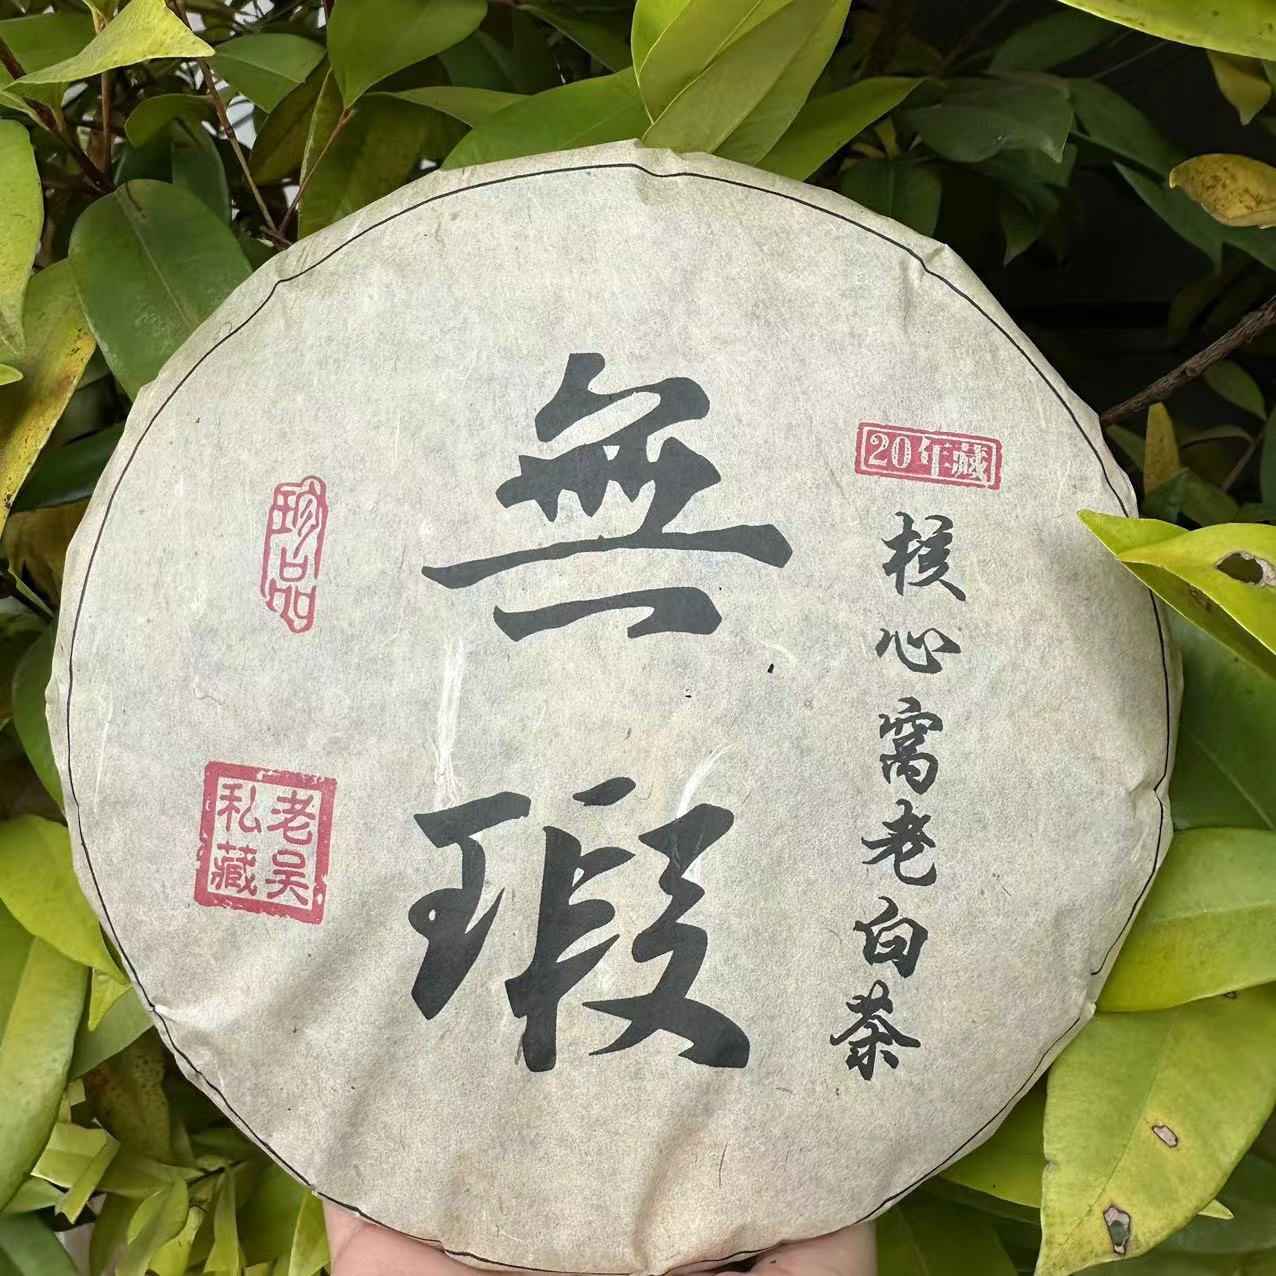 20年藏
核心窩老白茶
無瑕
珍品
老吴
私藏